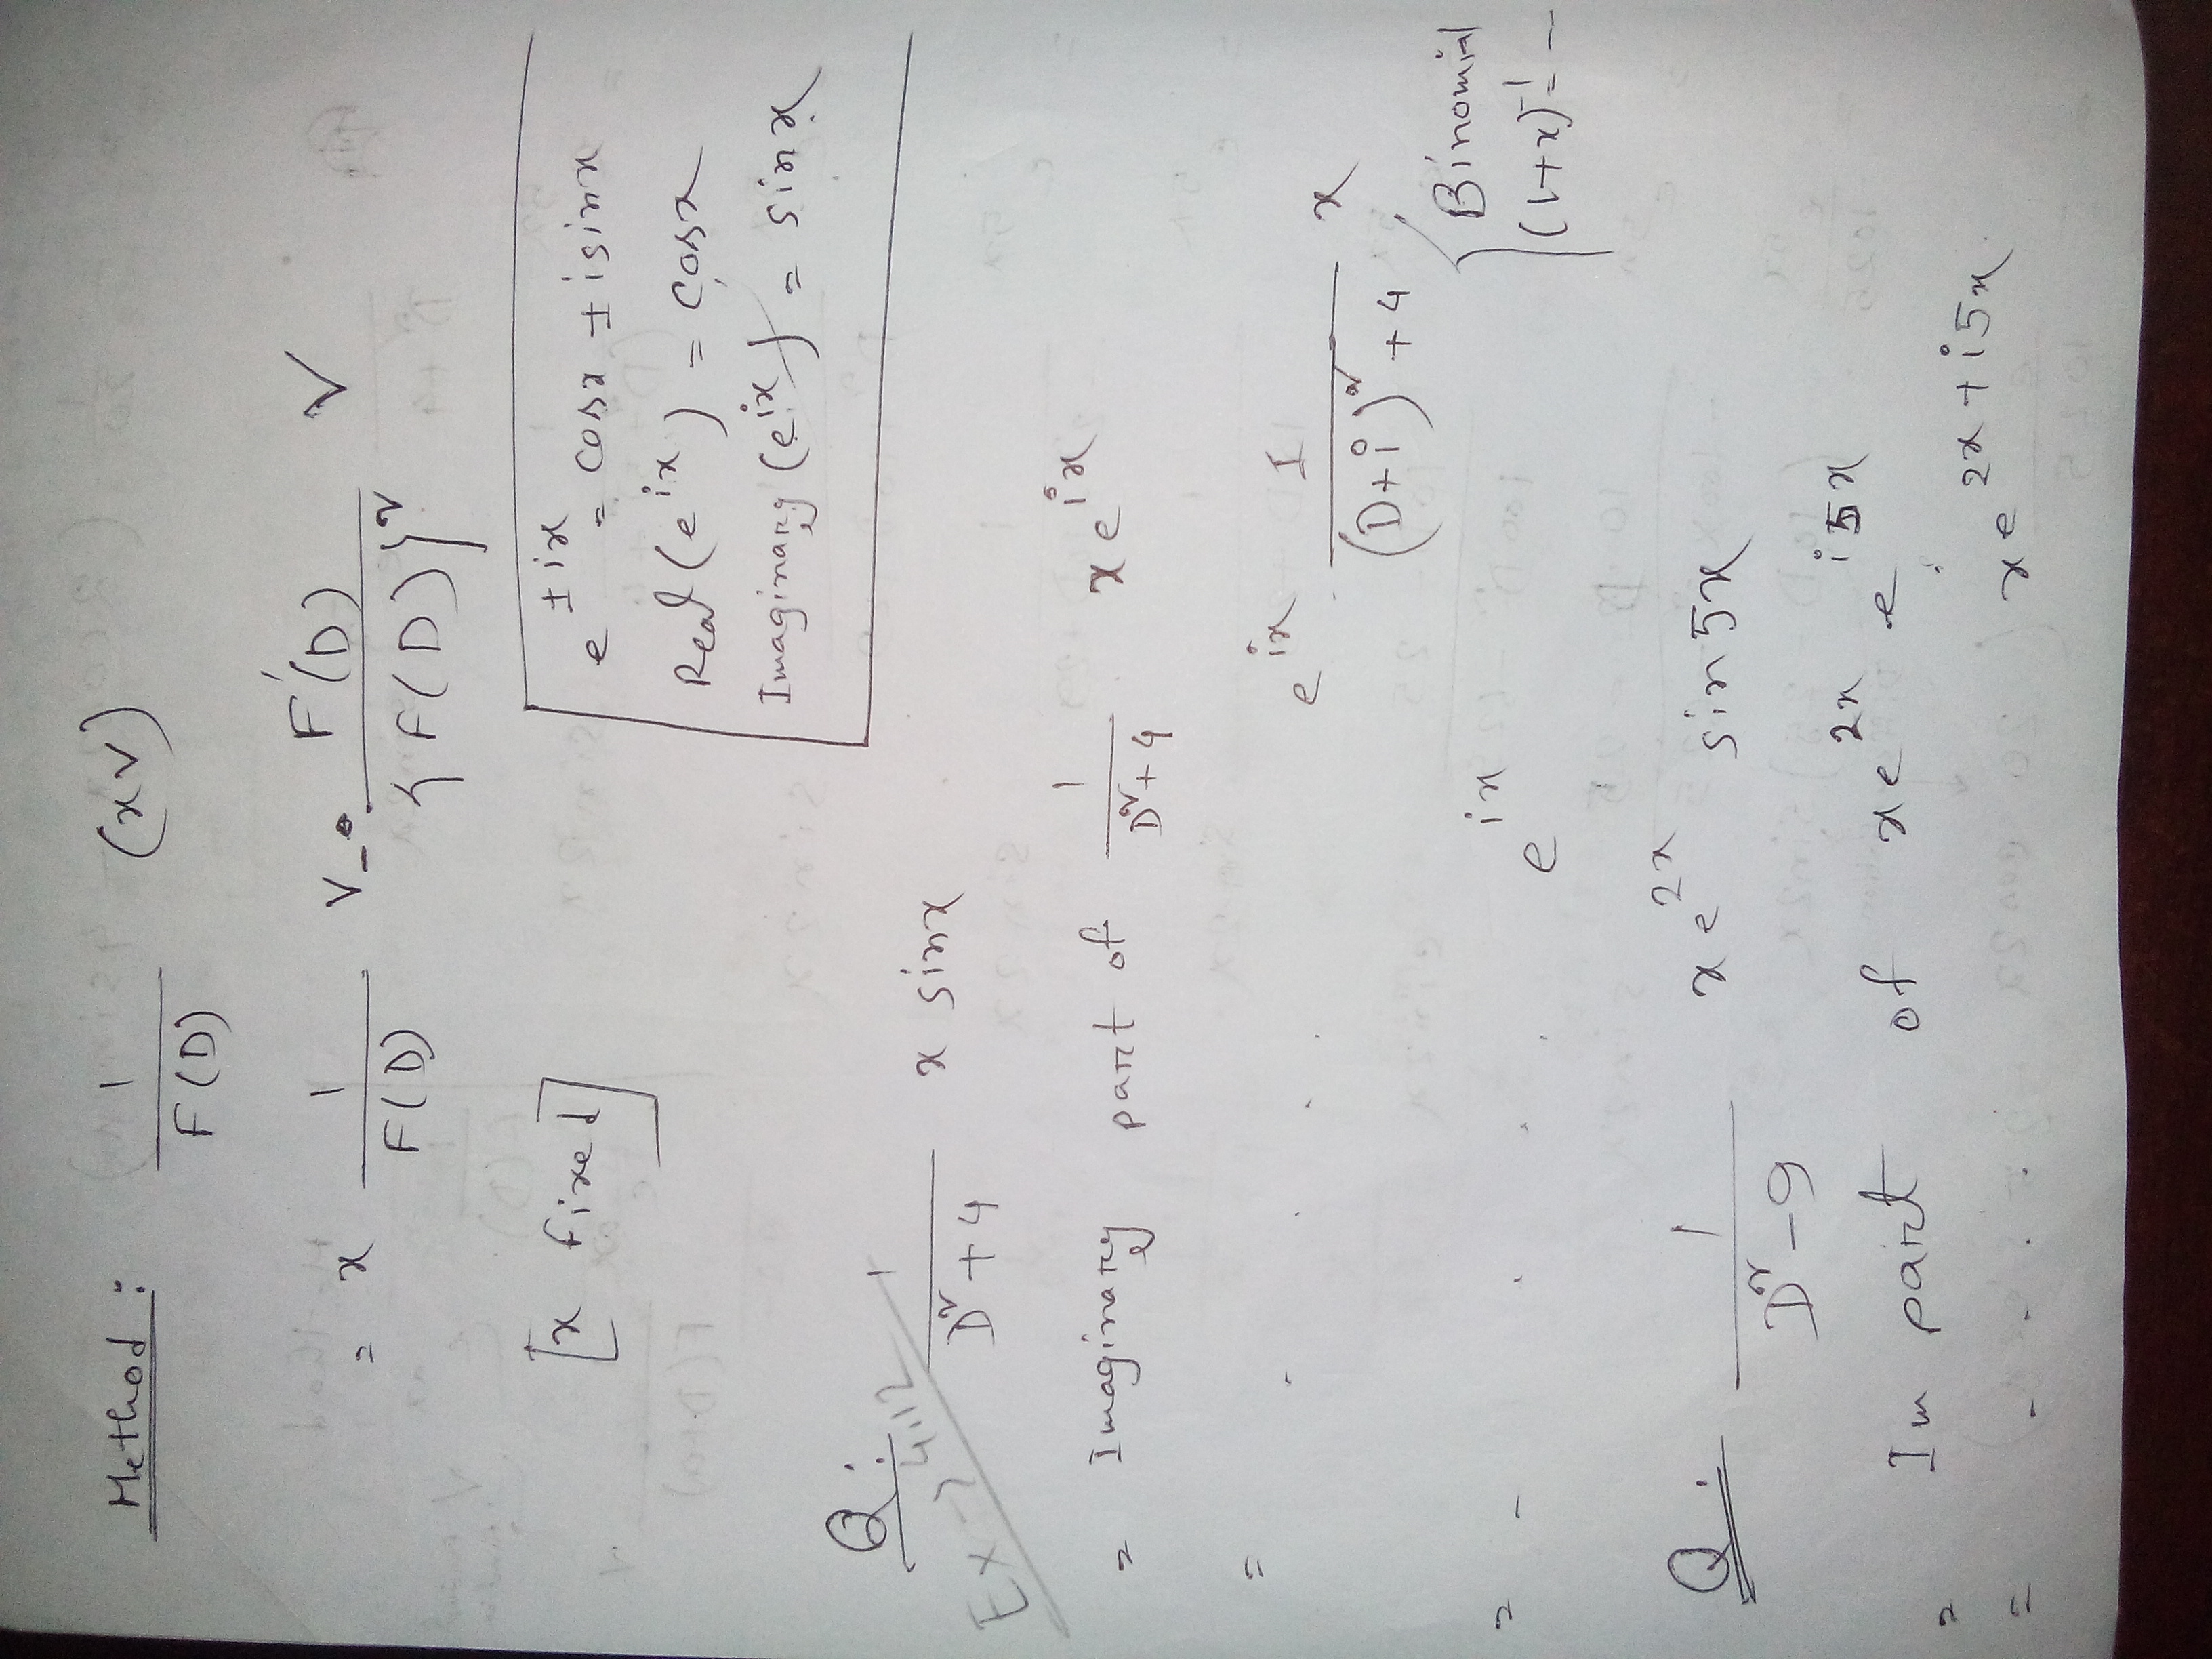 Method: 1/F(D) (xV)
= x 1/F(D) V - F'(D)/{F(D)}² V
[x fixed]
e^{±ix} = cosx ± isinx
Real(e^{ix}) = cosx
Imaginary(e^{ix}) = sinx
Q. 1/D²+4 x sinx
Ex →
= Imaginary part of 1/D²+4 xe^{ix}
= e^{ix} 1/(D+i)²+4 x
{Binomial
(1+x)^{-1} = --
= - e^{ix}
Q. 1/D²-9 xe^{2x} sin5x
= Im part of xe^{2x} e^{i5x}
= xe^{2x+i5x}